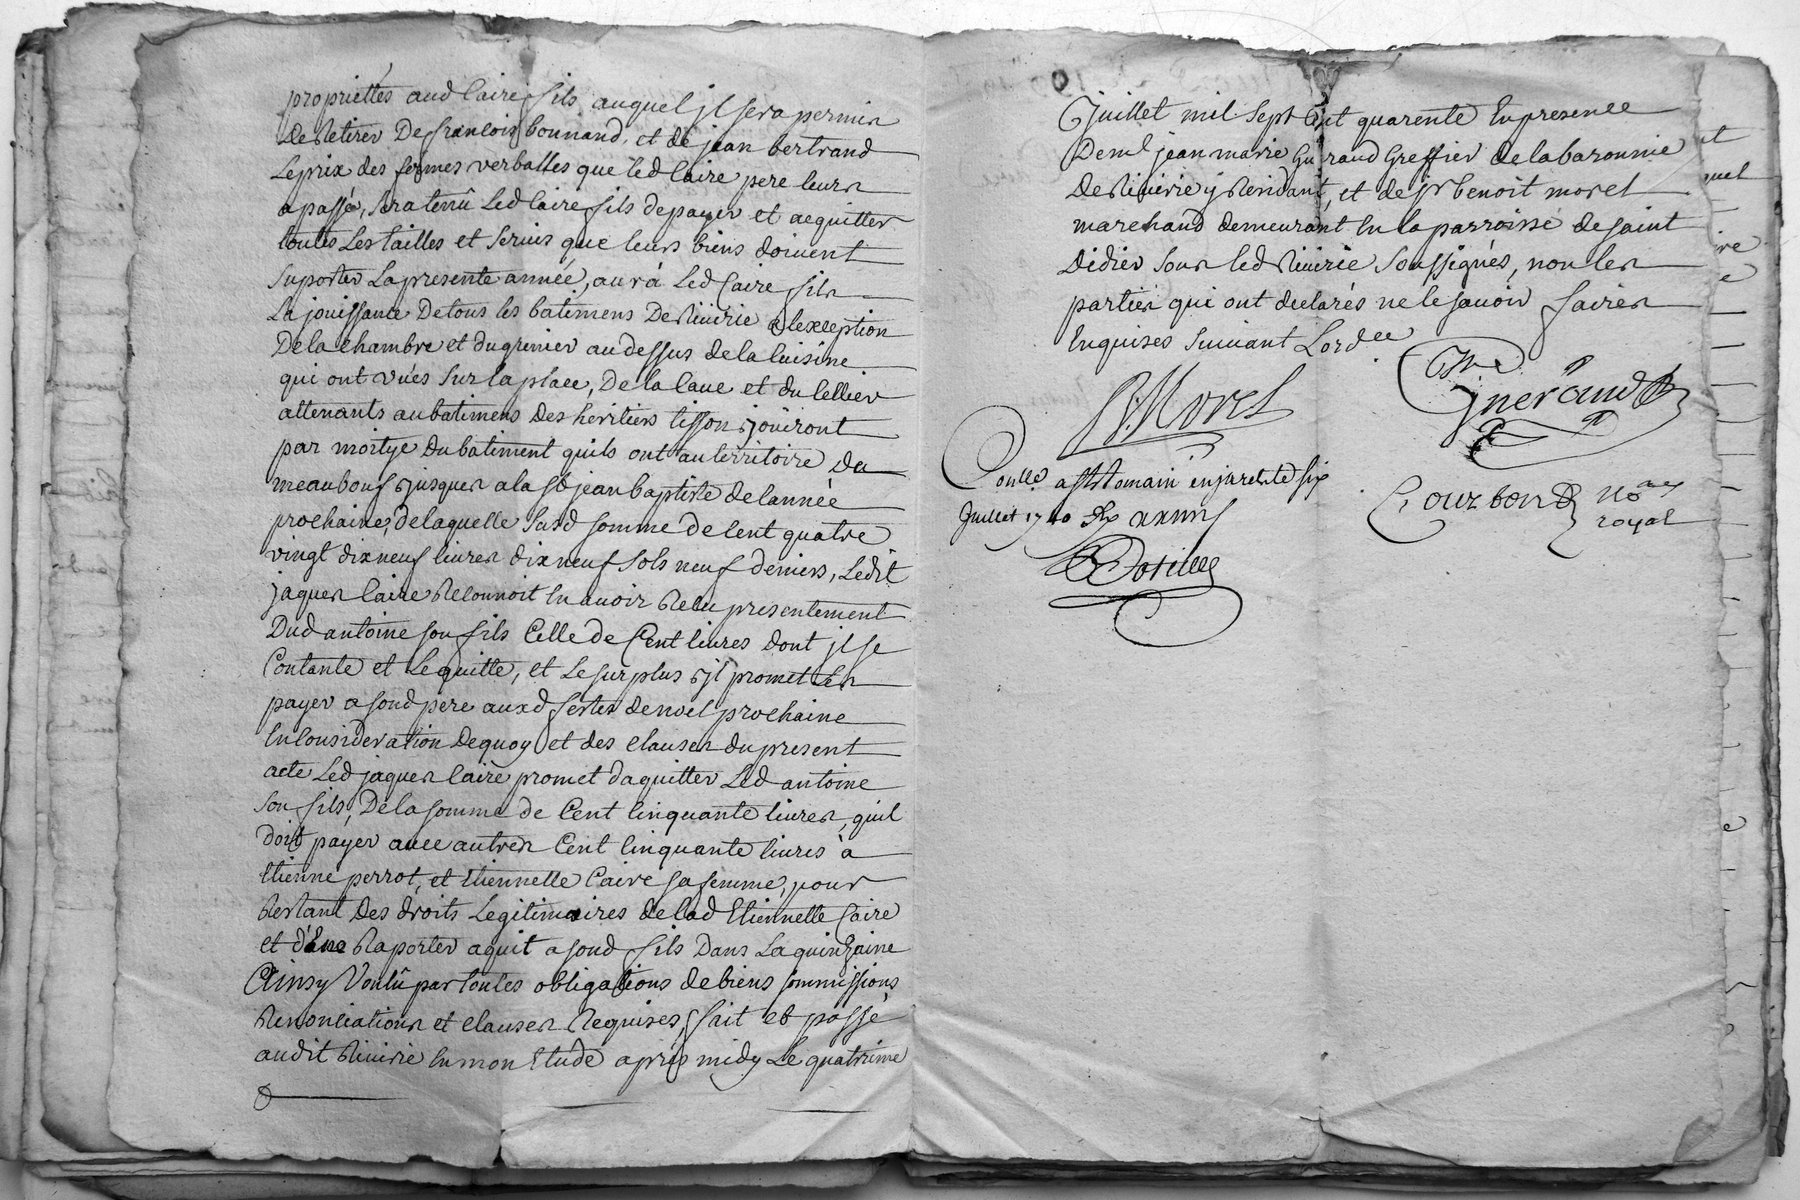 propriettés aud Caire fils, auquel jl sera permis
de Retirer De francois bonnand, et de jean bertrand
Le prix des fermes verballes que led Caire pere leurs
a passé, sera tenû Led Caire fils de payer et acquitter
toutes Les tailles et servis que leurs biens doivent
suporter La presente année, aurá Led Caire fils
La jouissance De tous les batimens De Riverie a lexception
De la chambre et du grenier au dessus de la Cuisine
qui ont vües sur la place, De la Cave et du Cellier
attenants au batimens Des heritiers tisson, jouiront
par moitye Du batiment quils ont au territoire du
meaubouf jusques a la St jean baptiste de lannée
prochaine, de laquelle susd somme de Cent quatre
vingt dix neuf livres dix neuf sols neuf deniers, Ledit
jaques Caire Reconnoit En avoir Recu presentement
Dud antoine son fils Celle de Cent livres dont jl se
Contante et Le quitte, et Le surplus jl promet Les
payer a sond pere auxd festes de noel prochaine
En Consideration De quoy et des clauses du present
acte Led jaques Caire promet daquitter Led antoine
son fils, De la somme de Cent Cinquante livres, quil
doit payer avec autres Cent Cinquante livres à
Etienne perrot, et Etiennette Caire sa femme, pour
Restant Des droits Legitimaires de lad Etiennette Caire
et d'En Raporter aquit a sond fils Dans La quinzaine
Ainsy Voulû par toutes obligations de biens soumissions
Renonciations et clauses Requises, fait et passé
audit Riverie En mon Etude apres midy Le quatrime
Juillet mil sept Cent quarente En presence
De me jean marie Gueraud Greffier de la baronnie
De Riverie y Residant, et de sr benoit morel
marchand demeurant En la parroisse de saint
Didier sous led Riverie soussignés, non les
parties qui ont declarés ne le savoir faire
Enquises suivant Lordce
B. Morel
Gueraud
Conllé a St Romain en jarets le six
Juillet 1740
Bourbon No
royal